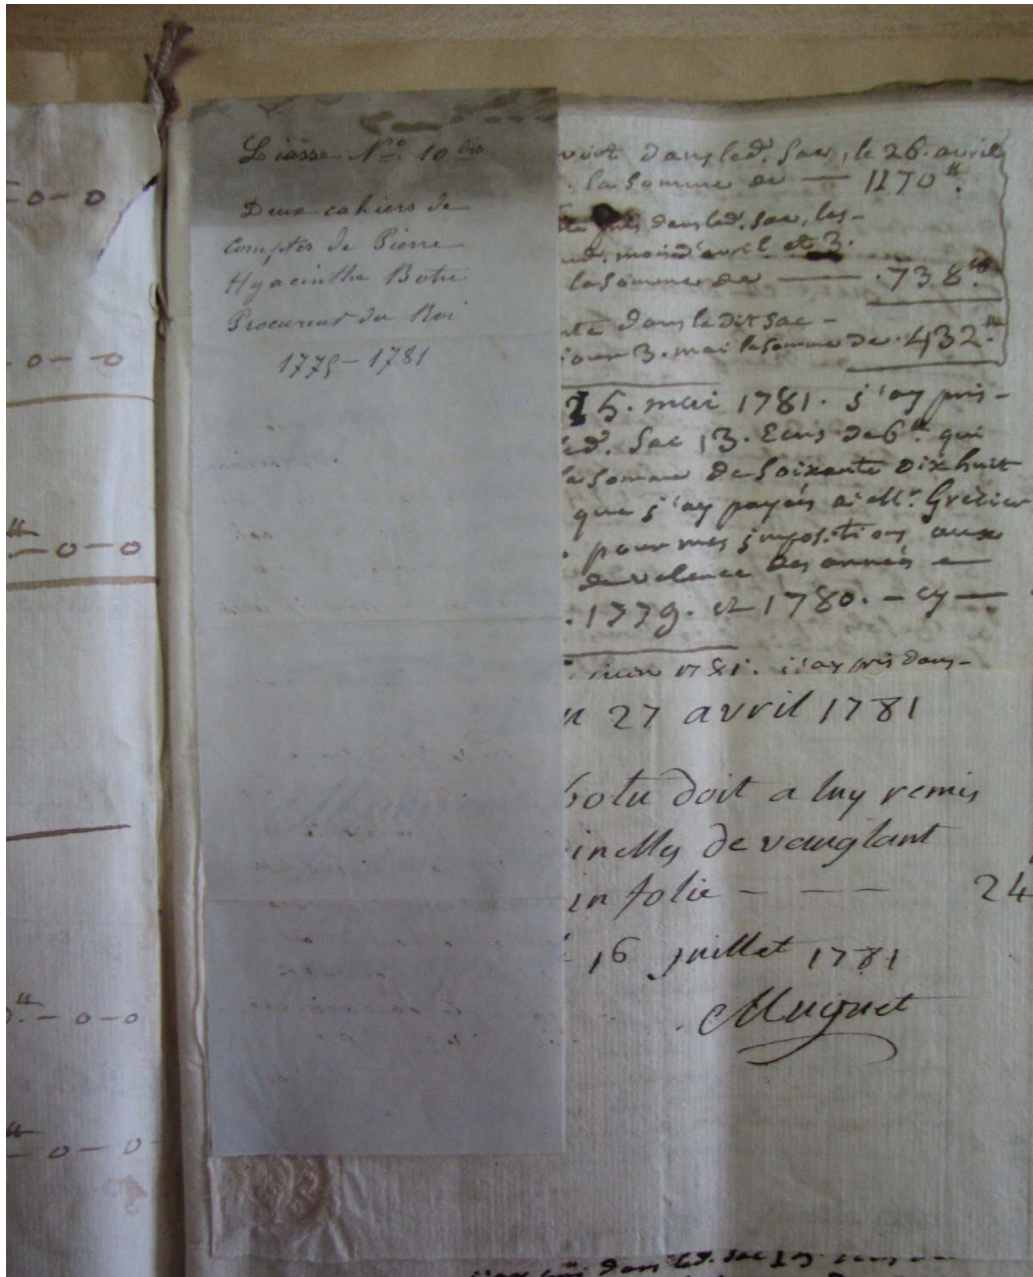 -0-0
-0-0
₶-0-0
₶-0-0
₶-0-0
Liasse N.º 10 bis
Deux cahiers de
comptes de Pierre
Hyacinthe Botu
Procureur du Roi
1779-1781
dans led. sac, le 26. avril
la somme de — 1170 ₶.
dans led. sac, les
moid'avril et 3.
la somme de — .738.₶
dans le dit sac -
jour 3. mai la somme de .432.₶
25. mai 1781. j'ay pris -
led. sac 13. Ecus de 6₶. qui
la somme de soixante dix huit
que j'ay payés a Mr. Grelier
pour mes jmpositions aux
de valence des années
. 1779. et 1780. - cy —
juin 1781. j'ay pris dans -
27 avril 1781
botu doit a luy remis
de vauglant
in folio - — — 24
16 juillet 1781
Muguet
dans led. sac